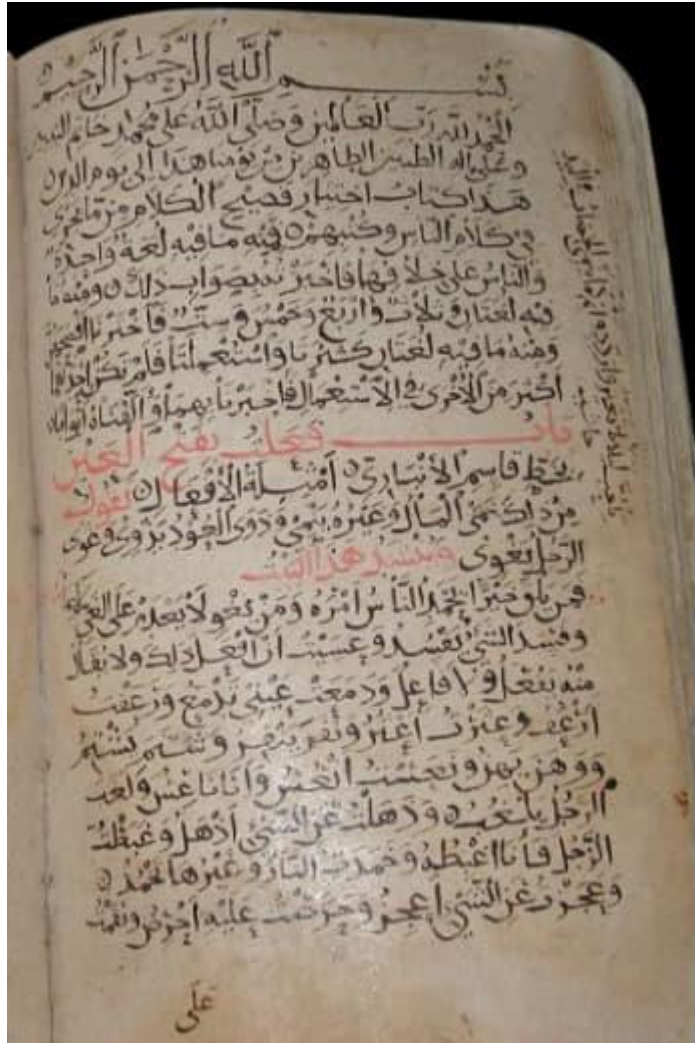 بسم الله الرحمن الرحيم
الحمد لله رب العالمين وصلى الله على محمد خاتم النبيين
وعلى اله الطيبين الطاهرين من يومنا هذا الى يوم الدين
هذا كتاب اختيار فصيح الكلام مما يجري
في كلام الناس وكتبهم فيه ما فيه لغة واحدة
والناس على خلافها فاخبرنا بصواب ذلك ومنه ما
فيه لغتان وثلاث واربع وخمس وست فاخبرنا بافصحهن
ومنه ما فيه لغتان كثرتا واستعملتا فلم تكن احداهما
اكثر من الاخرى في الاستعمال فاخبرنا بهما والفناه ابوابا
باب فعلت بفتح العين
بخط قاسم الانباري امثلة الافعال تقول
من ذلك نمى المال وغيره ينمي وذوى العود يذوي وغوى
الرجل يغوي وينشد هذا البيت
فمن يلق خيرا يحمد الناس امره ومن يغو لا يعدم على الغي
وفسد الشئ يفسد وعسيت ان افعل ذلك ولا يقال
منه يفعل ولا فاعل ودمعت عيني تدمع ورعفت
ارعف وعثرت اعثر ونفر ينفر وشتم يشتم
ووهن يهن ونعست انعس وانا ناعس ولغب
الرجل يلغب وذهلت عن الشئ اذهل وغبطت
الرجل فانا اغبطه وخمدت النار وغيرها تخمد
وعجزت عن الشئ اعجز وحرصت عليه احرص ونقمت
على